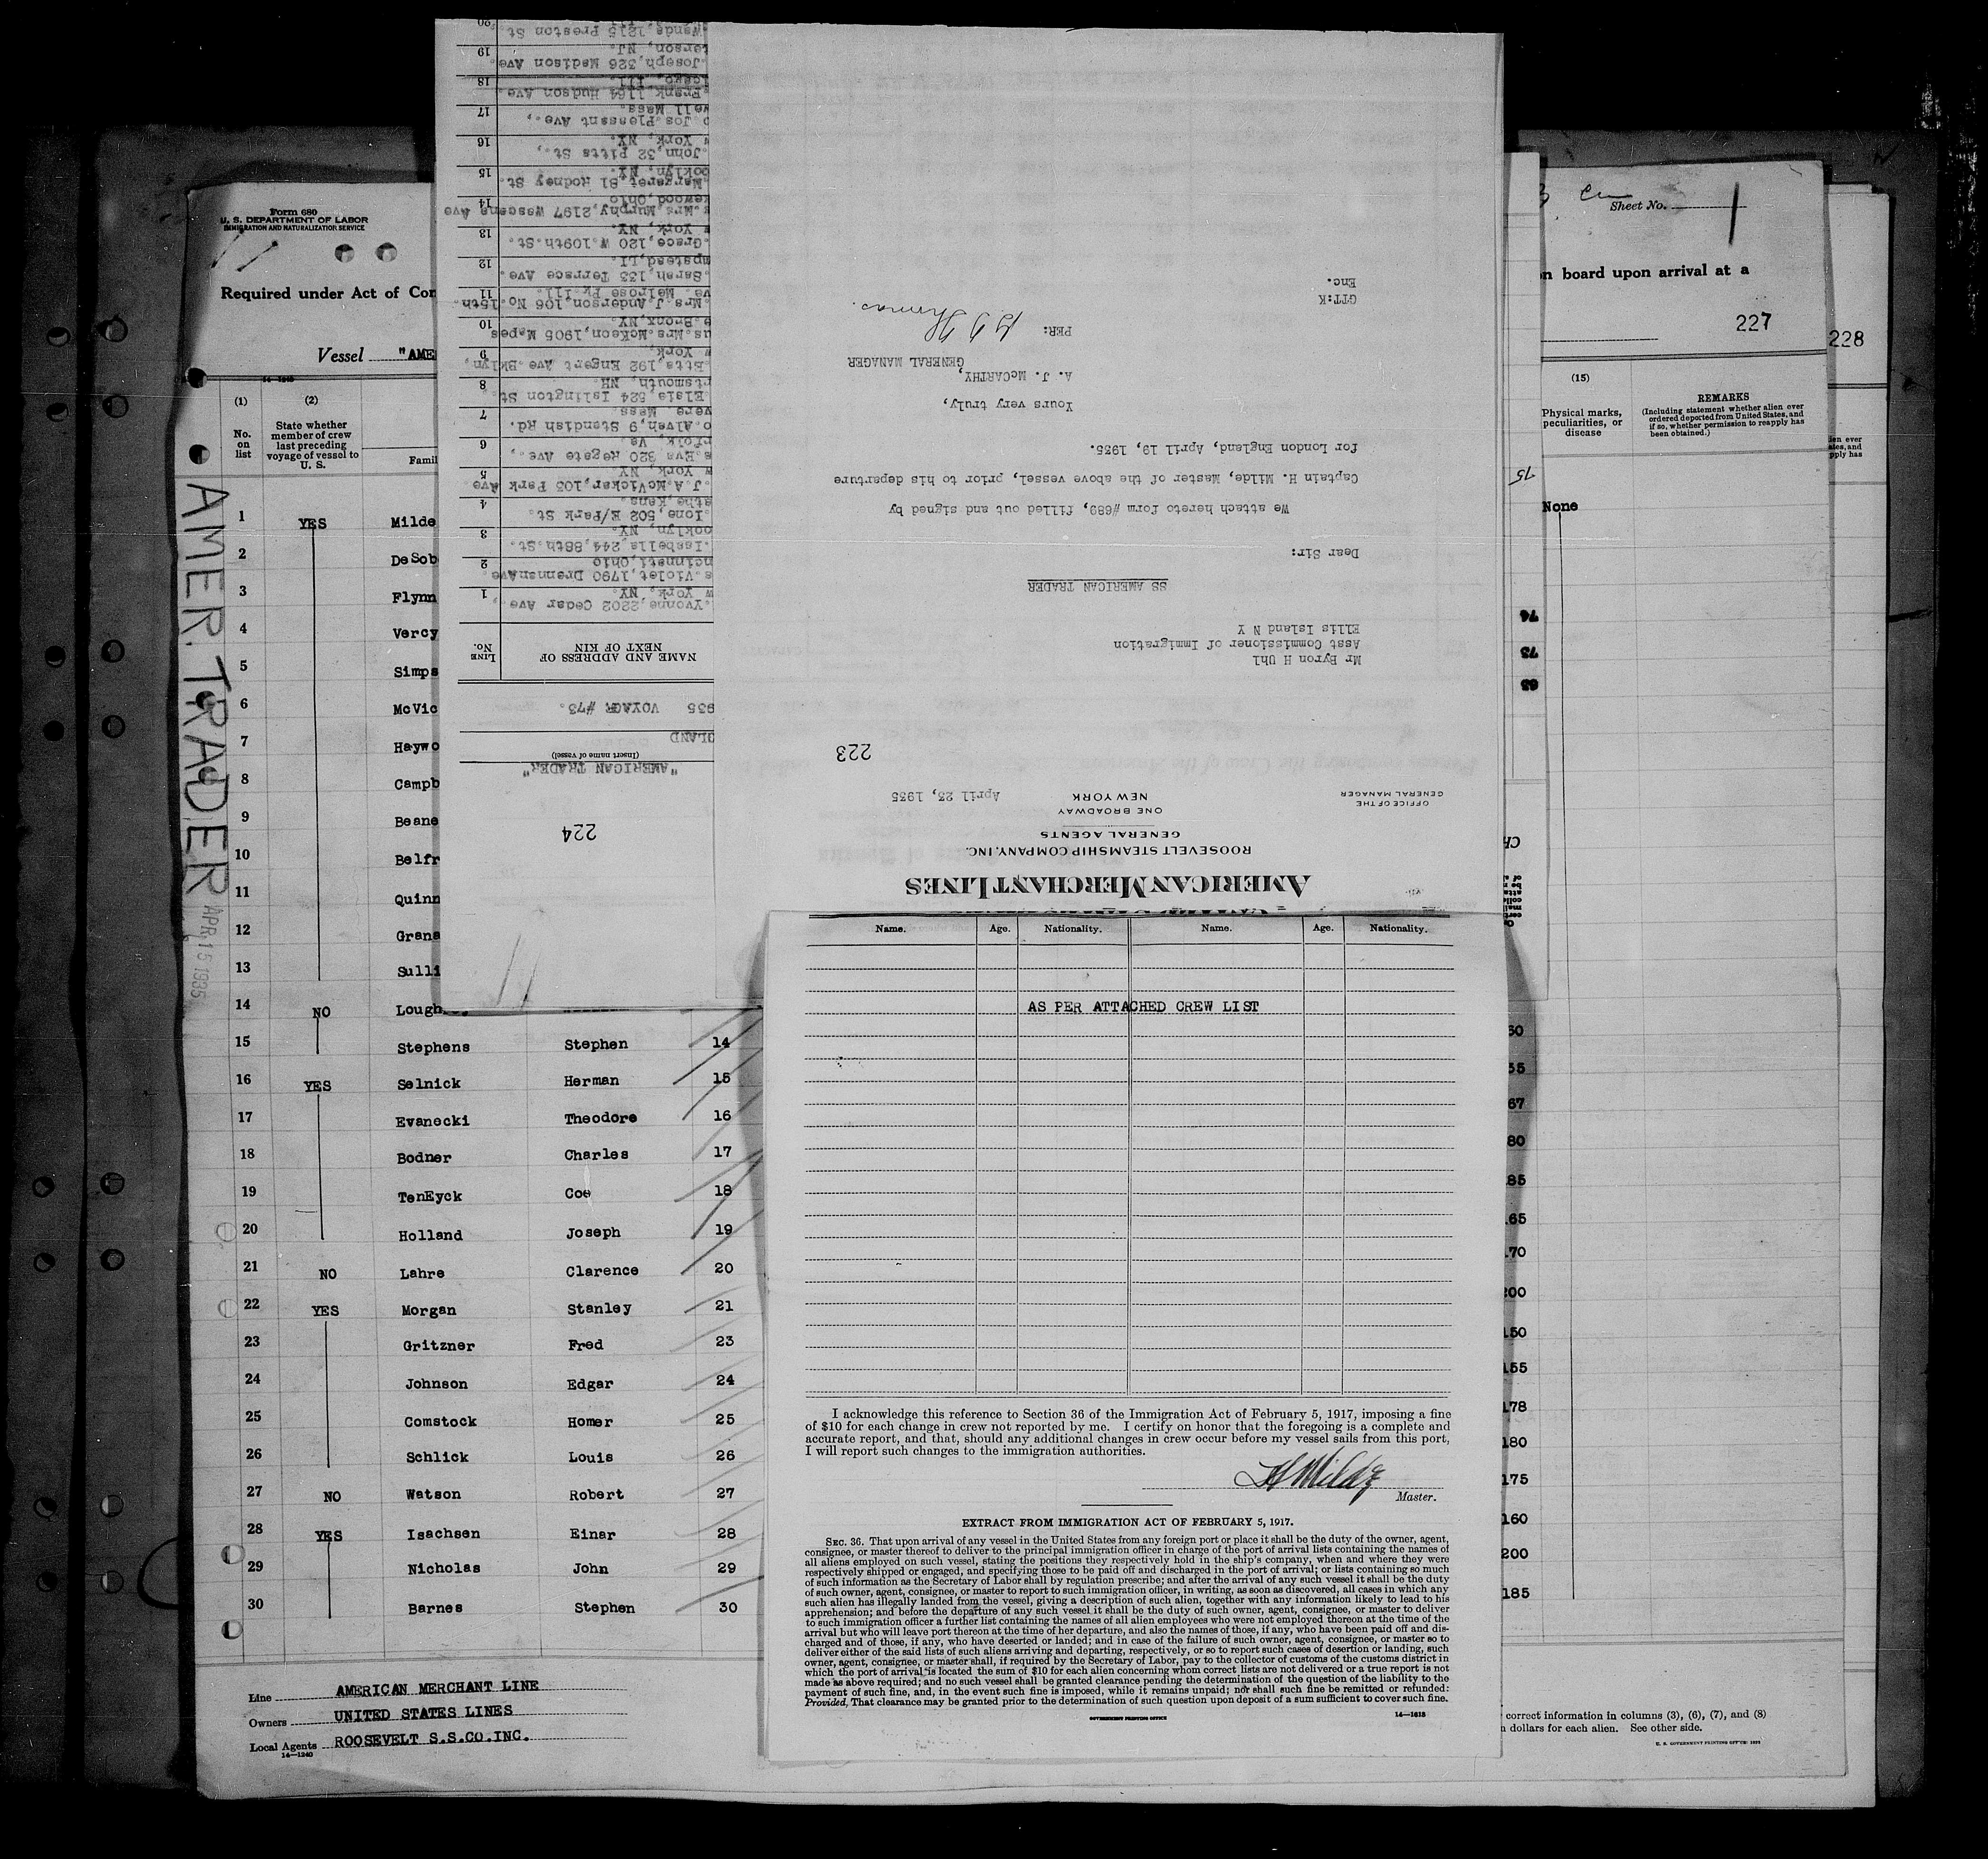 Form 680
U. S. DEPARTMENT OF LABOR
IMMIGRATION AND NATURALIZATION SERVICE
Required under Act of Con
Vessel "AME
14-1240
(1) (2)
No. on list
State whether member of crew last preceding voyage of vessel to U. S.
Famil
AMER. TRADER
APR 15 1935
1 YES Milde
2 DeSob
3 Flynn
4 Vercy
5 Simps
6 McVic
7 Haywo
8 Campb
9 Beane
10 Belfr
11 Quinn
12 Grana
13 Sulli
14 NO Lough
15 Stephens Stephen 14
16 YES Selnick Herman 15
17 Evanecki Theodore 16
18 Bodner Charles 17
19 TenEyck Coe 18
20 Holland Joseph 19
21 NO Lahre Clarence 20
22 YES Morgan Stanley 21
23 Gritzner Fred 23
24 Johnson Edgar 24
25 Comstock Homer 25
26 Schlick Louis 26
27 NO Watson Robert 27
28 YES Isachsen Einar 28
29 Nicholas John 29
30 Barnes Stephen 30
Line AMERICAN MERCHANT LINE
Owners UNITED STATES LINES
Local Agents ROOSEVELT S.S.CO.INC.
14-1240
224
"AMERICAN TRADER"
(Insert name of vessel)
GLAND
935 VOYAGE #73.
LINE No.
NAME AND ADDRESS OF NEXT OF KIN
1 .Yvonne,2202 Cedar Ave.,
w York, NY.
2 s.Violet,1790 DrennanAve
ncinnati,Ohio
3 .Isabella,244,88th.St.
ooklyn, NY.
4 .Ione,502 E/Park St.
athe,Kans.
5 .J.A.McVickar,103 Park Ave
w York, NY.
6 s.Eva 320 Regate Ave.,
rfolk, Va.
7 o.Alven,9 Standish Rd.
vere, Mass.
8 .Elsie,524 Islington St.
rtsmouth, NH.
9 .Etta,192 Engert Ave.Bklyn,
w York,
10 us.Mrs.McKeon,1905 Mapes
e.Bronx,NY.
11 .Mrs.J.Anderson,106 No.15th.
ve. Melrose Pk.Ill.
12 .Sarah,133 Terrace Ave.
mpstead,LI.
13 .Grace,120 W.109th.St.
w York, NY.
14 s.Mrs.Murphy,2197 Wascana Ave
kewood,Ohio
15 .Margaret,81 Rodney St.
ooklyn, NY.
16 .John,32 Pitts St.,
w York, NY.
17 o Jos.Pleasant Ave.,
well Mass.
18 .Frank,1164 Hudson Ave.
icago, Ill.
19 .Joseph,326 Madison Ave.
terson, NJ.
20 .Wanda,1215 Preston St.
AMERICAN MERCHANT LINES
ROOSEVELT STEAMSHIP COMPANY, INC.
GENERAL AGENTS
ONE BROADWAY
NEW YORK
OFFICE OF THE
GENERAL MANAGER
April 23, 1935
223
Mr Byron H Uhl
Asst Commissioner of Immigration
Ellis Island N Y
SS AMERICAN TRADER
Dear Sir:
We attach hereto form #689, filled out and signed by
Captain H. Milde, Master of the above vessel, prior to his departure
for London England, April 19, 1935.
Yours very truly,
A. J. McCARTHY,
GENERAL MANAGER
PER: G T Thomas.
GTT:K
Enc.
Name. Age. Nationality. Name. Age. Nationality.
AS PER ATTACHED CREW LIST
I acknowledge this reference to Section 36 of the Immigration Act of February 5, 1917, imposing a fine
of $10 for each change in crew not reported by me. I certify on honor that the foregoing is a complete and
accurate report, and that, should any additional changes in crew occur before my vessel sails from this port,
I will report such changes to the immigration authorities.
H Milde
Master.
EXTRACT FROM IMMIGRATION ACT OF FEBRUARY 5, 1917.
SEC. 36. That upon arrival of any vessel in the United States from any foreign port or place it shall be the duty of the owner, agent,
consignee, or master thereof to deliver to the principal immigration officer in charge of the port of arrival lists containing the names of
all aliens employed on such vessel, stating the positions they respectively hold in the ship's company, when and where they were
respectively shipped or engaged, and specifying those to be paid off and discharged in the port of arrival; or lists containing so much
of such information as the Secretary of Labor shall by regulation prescribe; and after the arrival of any such vessel it shall be the duty
of such owner, agent, consignee, or master to report to such immigration officer, in writing, as soon as discovered, all cases in which any
such alien has illegally landed from the vessel, giving a description of such alien, together with any information likely to lead to his
apprehension; and before the departure of any such vessel it shall be the duty of such owner, agent, consignee, or master to deliver
to such immigration officer a further list containing the names of all alien employees who were not employed thereon at the time of the
arrival but who will leave port thereon at the time of her departure, and also the names of those, if any, who have been paid off and dis-
charged and of those, if any, who have deserted or landed; and in case of the failure of such owner, agent, consignee, or master so to
deliver either of the said lists of such aliens arriving and departing, respectively, or so to report such cases of desertion or landing, such
owner, agent, consignee, or master shall, if required by the Secretary of Labor, pay to the collector of customs of the customs district in
which the port of arrival is located the sum of $10 for each alien concerning whom correct lists are not delivered or a true report is not
made as above required; and no such vessel shall be granted clearance pending the determination of the question of the liability to the
payment of such fine, and, in the event such fine is imposed, while it remains unpaid; nor shall such fine be remitted or refunded:
Provided, That clearance may be granted prior to the determination of such question upon deposit of a sum sufficient to cover such fine.
GOVERNMENT PRINTING OFFICE
14-1618
Sheet No. 1
n board upon arrival at a
227
228
(15)
Physical marks, peculiarities, or disease
REMARKS
(Including statement whether alien ever
ordered deported from United States, and
if so, whether permission to reapply has
been obtained.)
lien ever
ates, and
pply has
75
None
74
73
65
60
55
67
80
85
165
170
200
150
155
178
180
175
160
200
185
correct information in columns (3), (6), (7), and (8)
n dollars for each alien. See other side.
U. S. GOVERNMENT PRINTING OFFICE